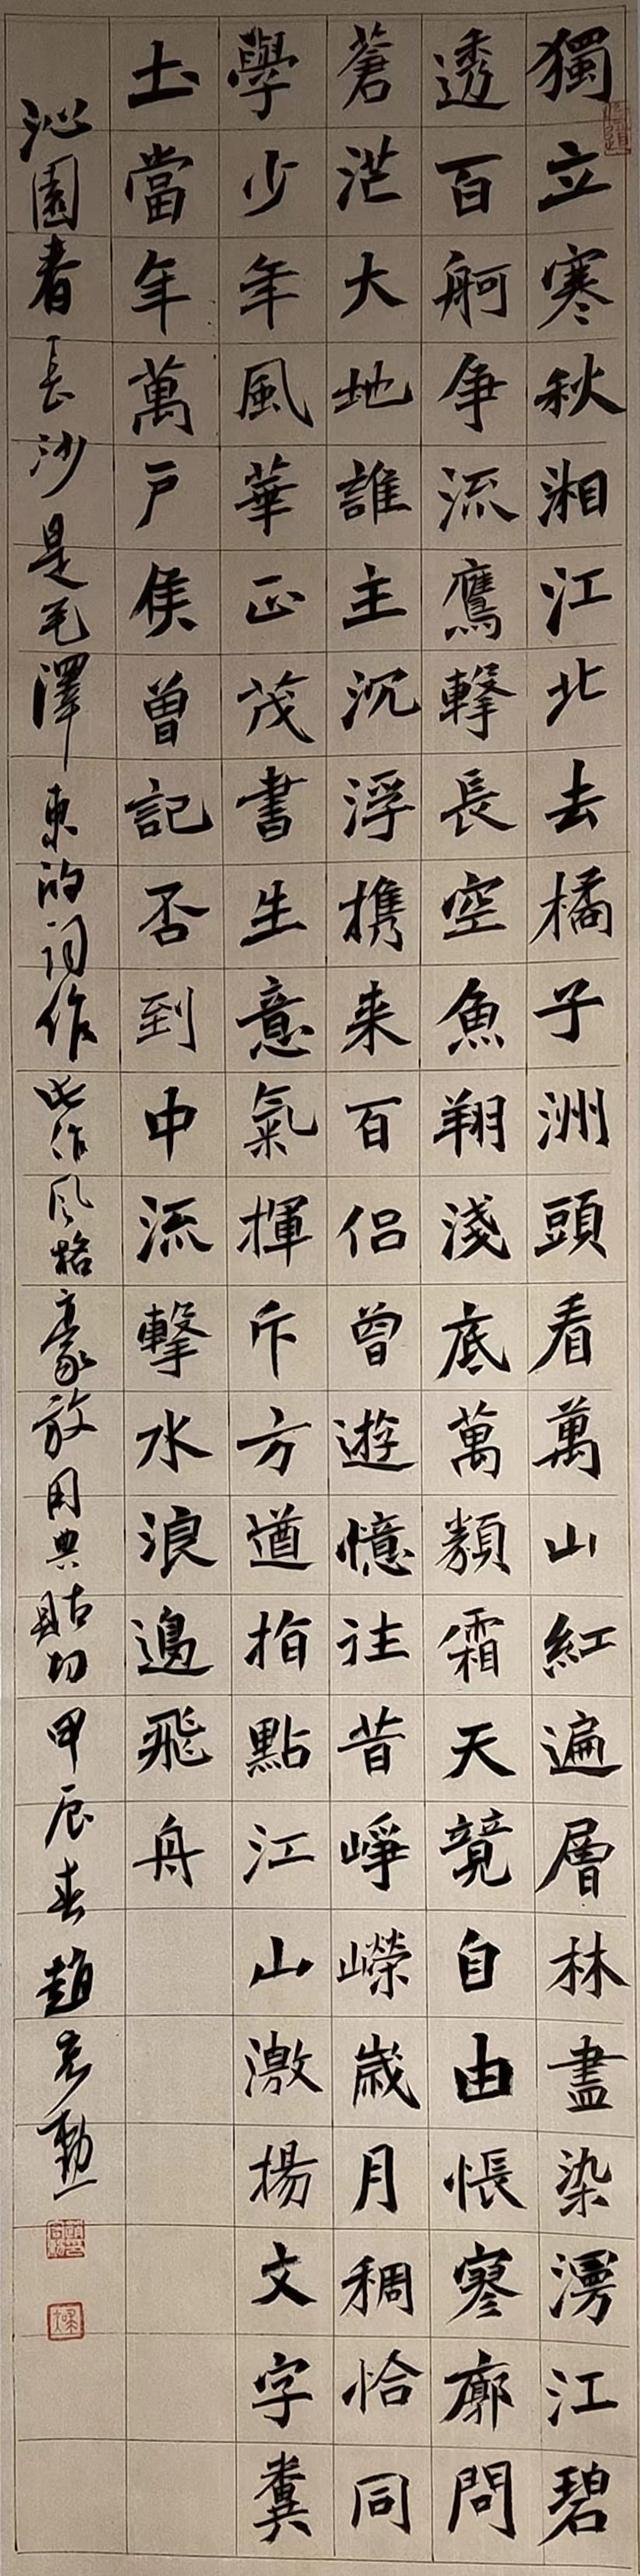 獨立寒秋湘江北去橘子洲頭看萬山紅遍層林盡染漫江碧
透百舸争流鷹擊長空魚翔淺底萬類霜天竟自由悵寥廓問
蒼茫大地誰主沉浮携来百侣曾遊憶往昔崢嶸歲月稠恰同
學少年風華正茂書生意氣揮斥方遒指點江山激揚文字糞
土當年萬户侯曾記否到中流擊水浪遏飛舟
沁園春長沙是毛澤東的词作此作風格豪放用典貼切甲辰春趙勳